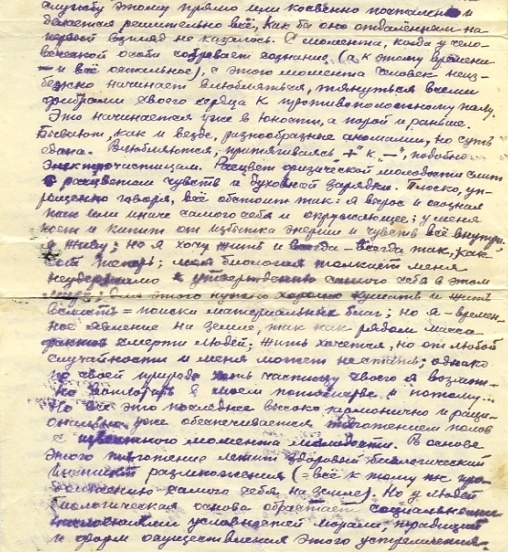 службу этому прямо или косвенно поставлено и
делается решительно всё, как бы оно отдалённым на
первой взгляд не казалось. С момента, когда у чело-
веческой особи созревает сознание (а к этому времени
и всё остальное), с этого момента человек неиз-
бежно начинает влюбляться, тянуться всеми
фибрами своего сердца к противоположному полу.
Это начинается уже в юности, а порой и раньше.
Бывают, как и везде, разнообразные аномалии, но суть
одна. Влюбляются, притягиваясь, "+" к "–", подобно
электрочастицам. Расцвет физической молодости слит
с расцветом чувств и духовной зарядки. Плоско, уп-
рощенно говоря, всё обстоит так: я вырос и осознал
так или иначе самого себя и окружающее; у меня
и кипит от избытка энергии и чувств всё внутри;
я живу; но я хочу жить и всегда – всегда так, как
теперь; моя биология толкает меня
неудержимо к утверждению самого себя в этом
для этого нужно хорошо кушать и жить
= поиски материальных благ; но я – времен-
ное явление на земле, так как рядом масса
фактов смерти людей. Жить хочется, но от любой
случайности и меня может не стать; однако
по своей природе хоть частицу своего я
но повторить в моем потомстве. и потому...
Но всё это последнее высоко гармонично и раци-
онально уже обеспечивается тяготением полов
с момента молодости. В основе
этого тяготение лежит здоровый биологический
инстинкт размножения (= всё к тому же про-
самого себя на земле). Но у людей
биологическая основа обрастает социальными
условностей морали, традиций
и форм осуществления этого устремления.